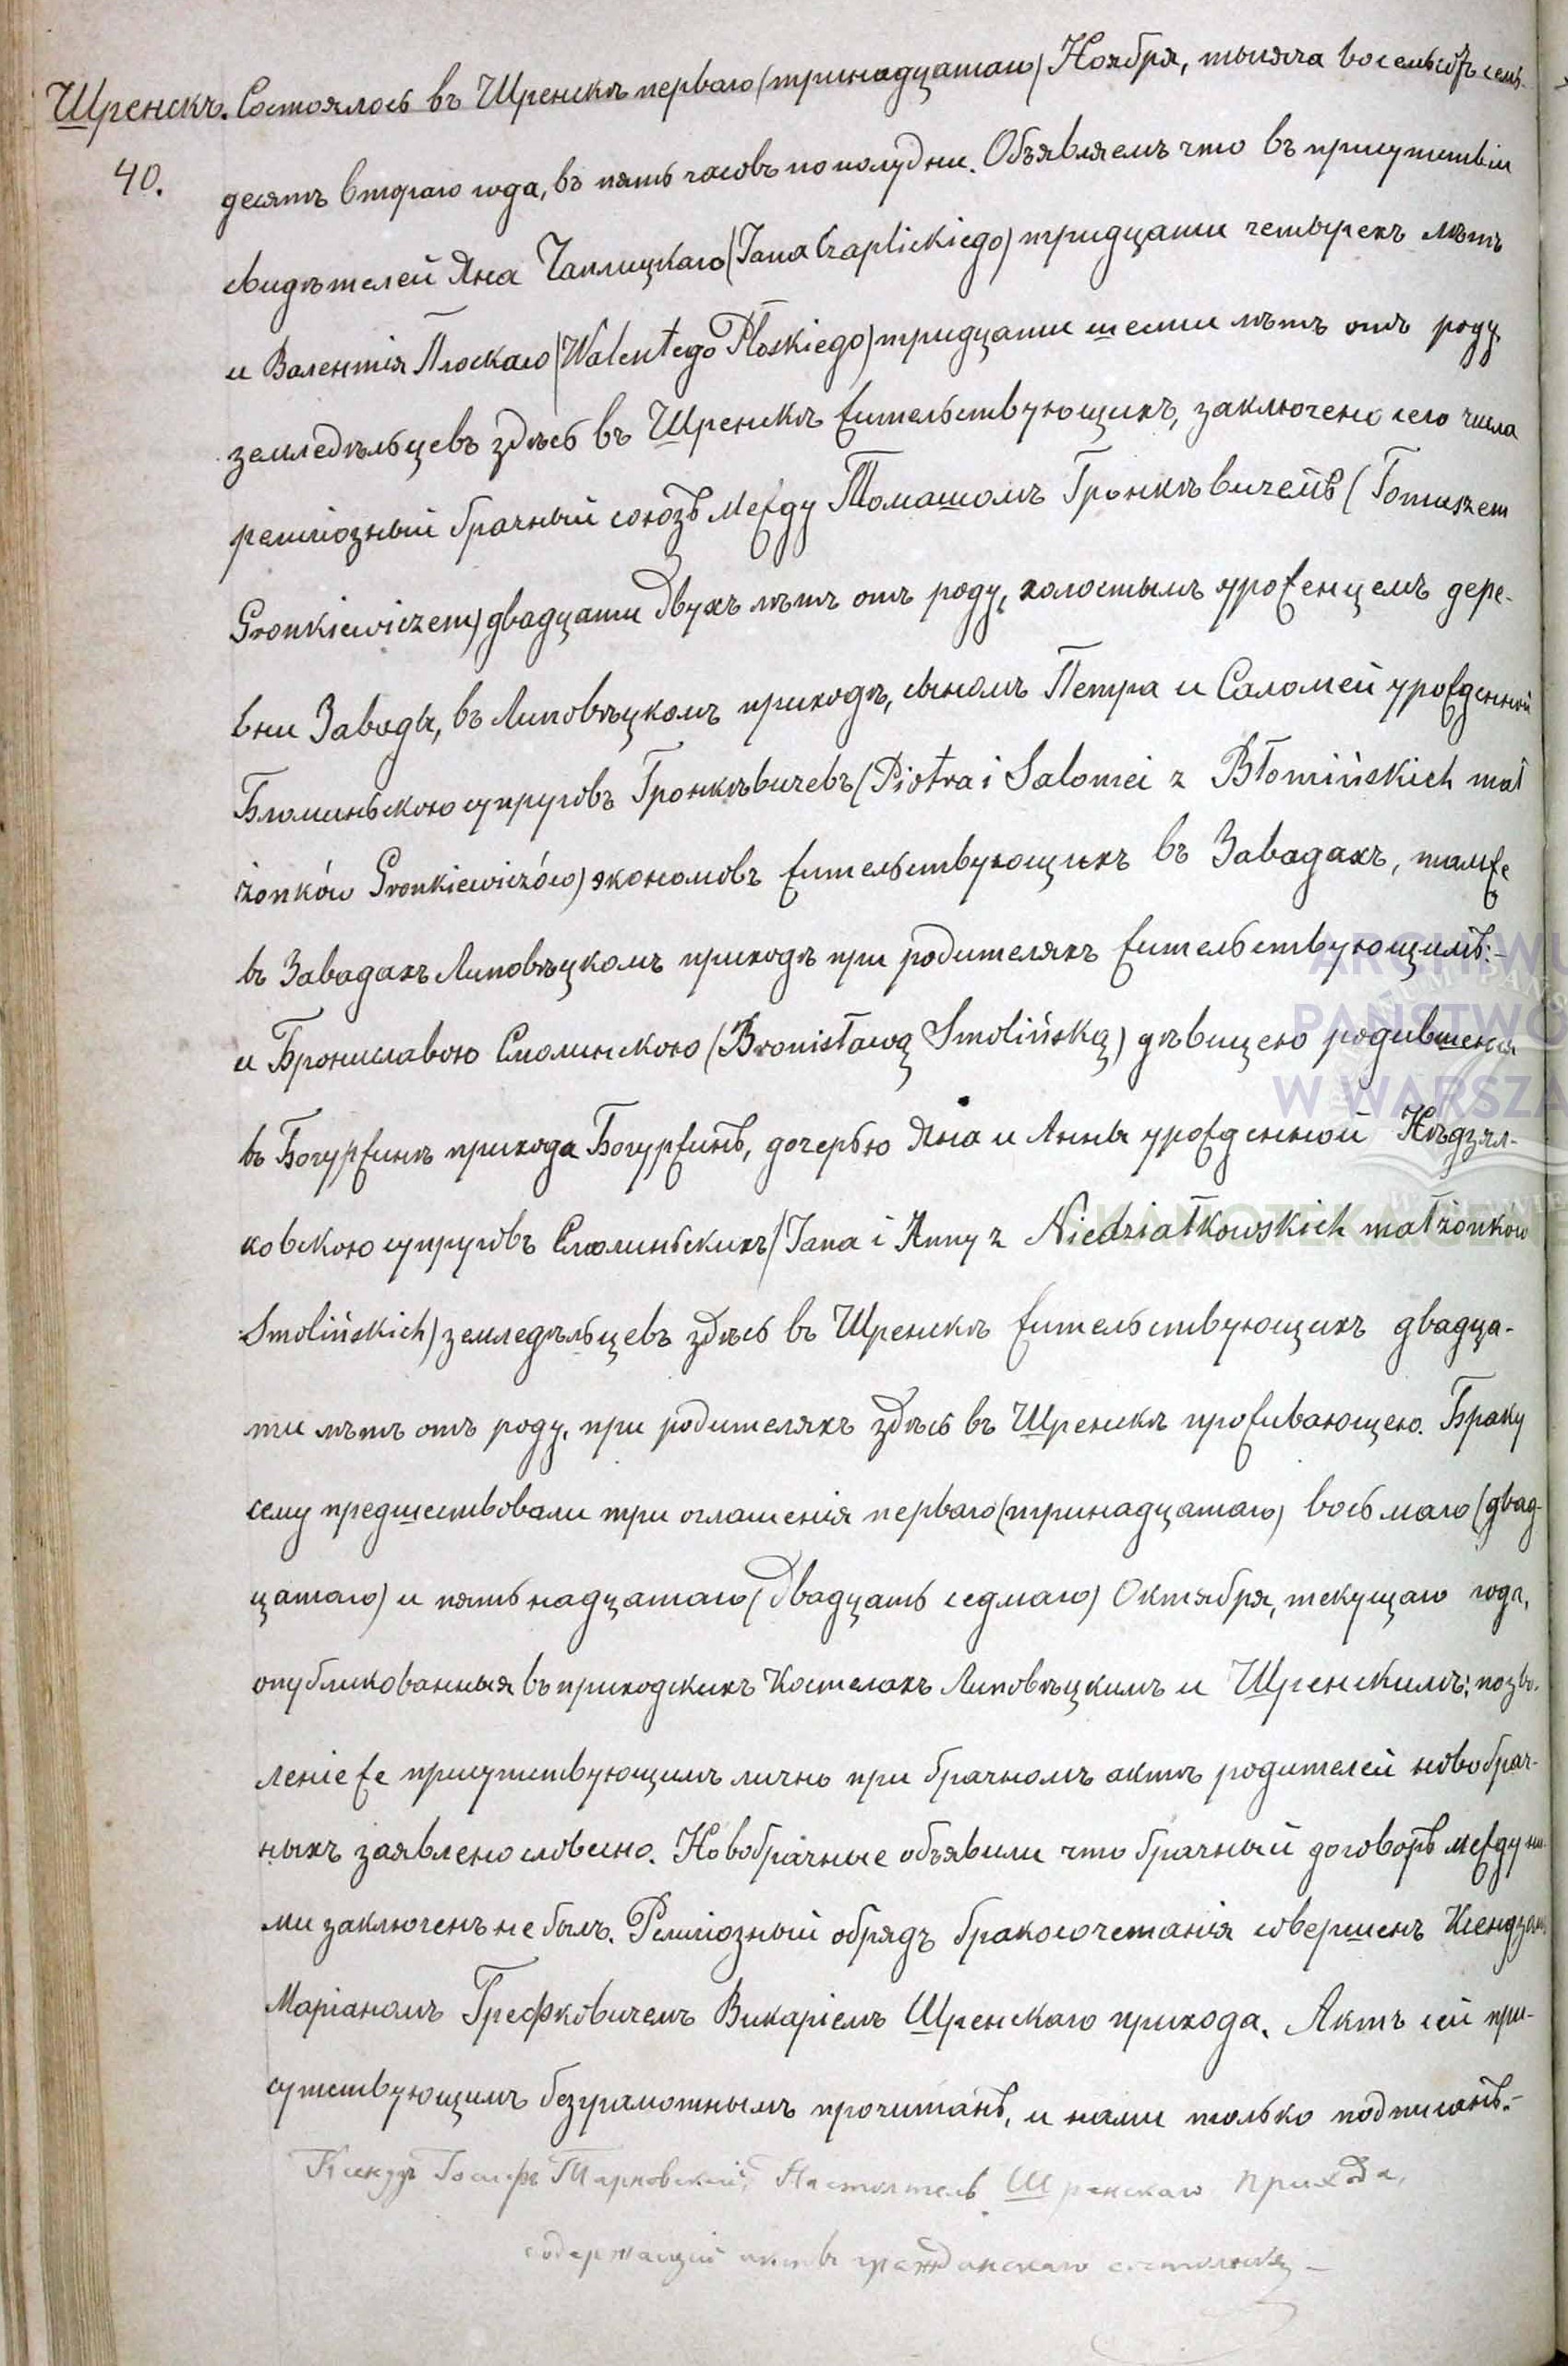 Шренскъ. Состоялось въ Шренскѣ перваго (тринадцатаго) Ноября, тысяча восемьсотъ семь-
40. десятъ втораго года, въ пять часовъ пополудни. Объявляемъ что въ присутствіи
свидѣтелей Яна Чаплицкаго (Jana Czaplickiego) тридцати четырехъ лѣтъ
и Валентія Плоскаго (Walentego Płoskiego) тридцати шести лѣтъ отъ роду,
земледѣльцевъ здѣсь въ Шренскѣ жительствующихъ, заключено сего числа
религіозный брачный союзъ между Томашомъ Гронкѣвичемъ (Tomaszem
Gronkiewiczem) двадцати двухъ лѣтъ отъ роду, холостымъ уроженцемъ дере-
вни Заводы, въ Липовѣцкомъ приходѣ, сыномъ Петра и Саломеи урожденной
Бломиньскою супруговъ Гронкѣвичевъ (Piotra i Salomei z Błomińskich mał
żonków Gronkiewiczów) экономовъ жительствующихъ въ Завадахъ, тамже
въ Завадахъ Липовѣцкомъ приходѣ при родителяхъ жительствующимъ:-
и Брониславою Смолинскою (Bronisławą Smolińską) дѣвицею родившеюся
въ Богуржинѣ прихода Богуржинъ, дочерью Яна и Анны урожденной Нѣдзял-
ковскою супруговъ Смолиньскихъ (Jana i Anny z Niedziałkowskich małżonków
Smolińskich) земледѣльцевъ здѣсь въ Шренскѣ жительствующихъ двадца-
ти лѣтъ отъ роду, при родителяхъ здѣсь въ Шренскѣ проживающею. Браку
сему предшествовали три оглашенія перваго (тринадцатаго) восьмаго (двад-
цатаго) и пятьнадцатаго (двадцать седмаго) Октября, текущаго года,
опубликованныя въ приходскихъ Костелахъ Липовѣцкимъ и Шренскимъ; позво-
леніе же присутствующимъ лично при брачномъ актѣ родителей новобрач-
ныхъ заявлено словесно. Новобрачные объявили что брачный договоръ между ни-
ми заключенъ не былъ. Религіозный обрядъ бракосочетанія совершенъ Ксендзомъ
Маріаномъ Грефковичемъ Викаріемъ Шренскаго прихода. Актъ сей при-
сутствующимъ безграмотнымъ прочитанъ, и нами только подписанъ.-
Ксендзъ Іосифъ Тарновскій, Настоятель Шренскаго Прихода,
содержащій актъ гражданскаго состоянія